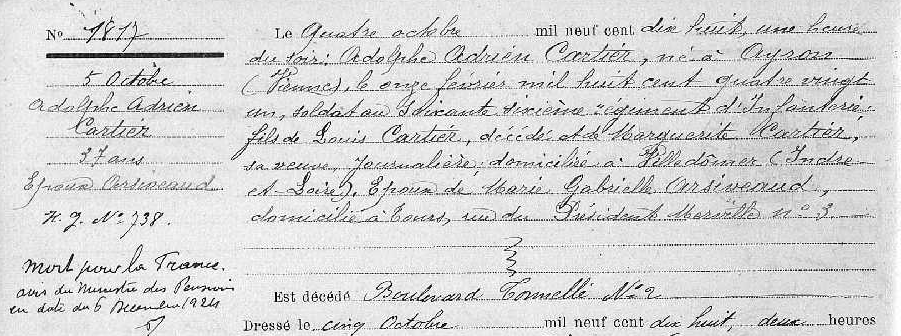 N° 1817
5 Octobre
Adolphe Adrien
Cartier
37 ans
Epoux Arsiveaud
H. J. N° 738.
Mort pour la France.
avis du Ministre des Pensions
en date du 6 Decembre 1924
Le Quatre octobre mil neuf cent dix huit, une heure
du soir: Adolphe Adrien Cartier, né à Ayron
(Vienne), le onze février mil huit cent quatre vingt
un, soldat au soixante sixième régiment d'Infanterie;
fils de Louis Cartier, décédé et de Marguerite Cartier,
sa veuve, Journalière, domiciliée à Villedômer (Indre
et-Loire). Epoux de Marie Gabrielle Arsiveaud,
domicilié à Tours, rue du Président Merville n° 3.
Est décédé Boulevard Tonnellé N° 2
Dressé le cinq Octobre mil neuf cent dix huit, deux heures